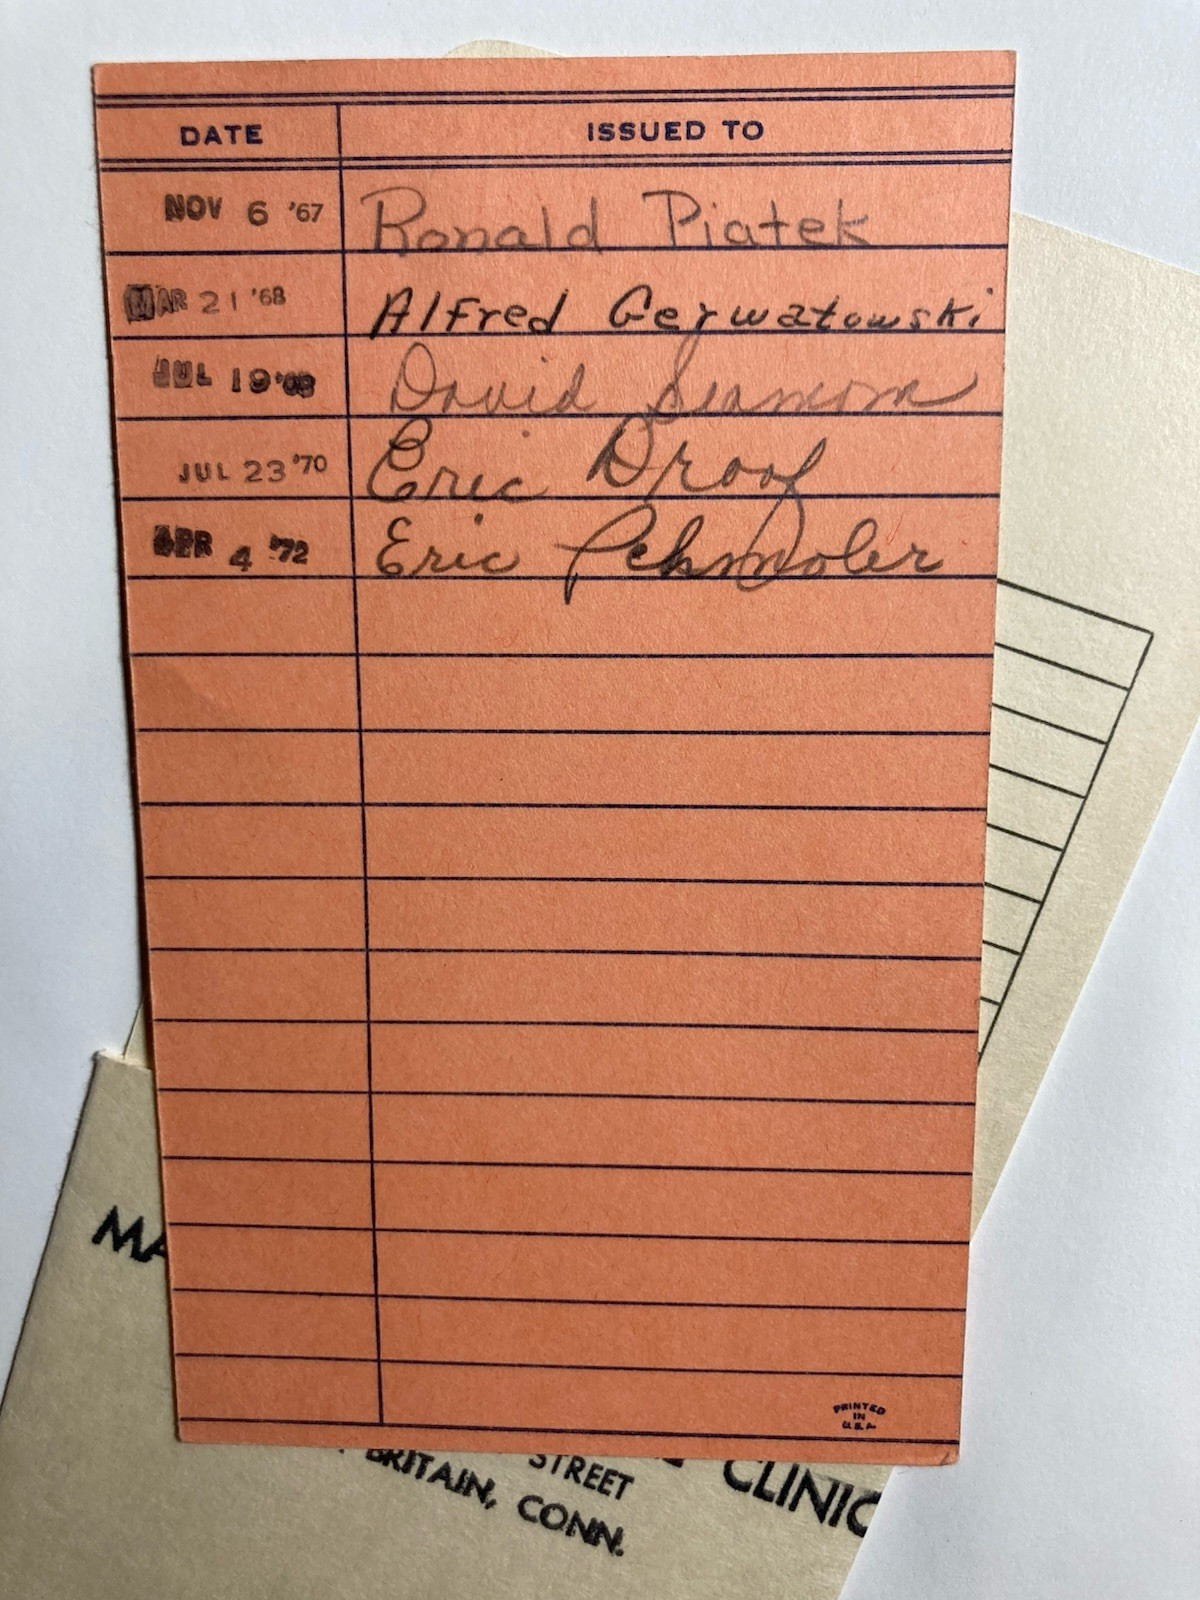 DATE ISSUED TO
NOV 6 '67 Ronald Piatek
MAR 21 '68 Alfred Gerwatowski
JUL 19 '68 David
JUL 23 '70 Eric Droof
APR 4 '72 Eric
PRINTED
IN
U.S.A.
MA
CLINIC
STREET
BRITAIN, CONN.